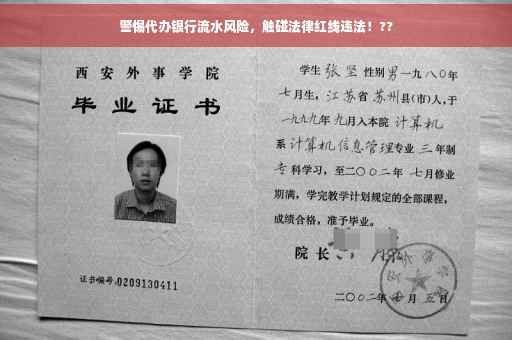 警惕代办银行流水风险，触碰法律红线违法！??
西安外事学院
毕业证书
证书编号:0209130411
学生 张坚 性别男一九八〇年
七月生，江苏省苏州县(市)人,于
一九九九年九月入本院 计算机
系计算机信息管理专业 三 年制
专科学习，至二〇〇二年 七月修业
期满，学完教学计划规定的全部课程，
成绩合格，准予毕业。
院长
二〇〇二年 月 五 日